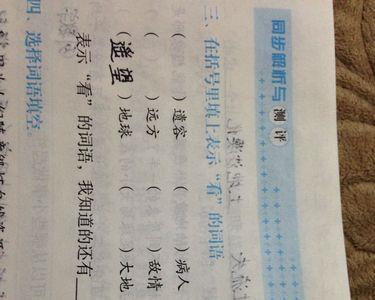 同步解析与测评
三、在括号里填上表示“看”的词语。
（ ）遗容 （ ）病人
（ ）远方 （ ）敌情
（遥望）地球 （ ）大地
表示“看”的词语，我知道的还有
四、选择词语填空。